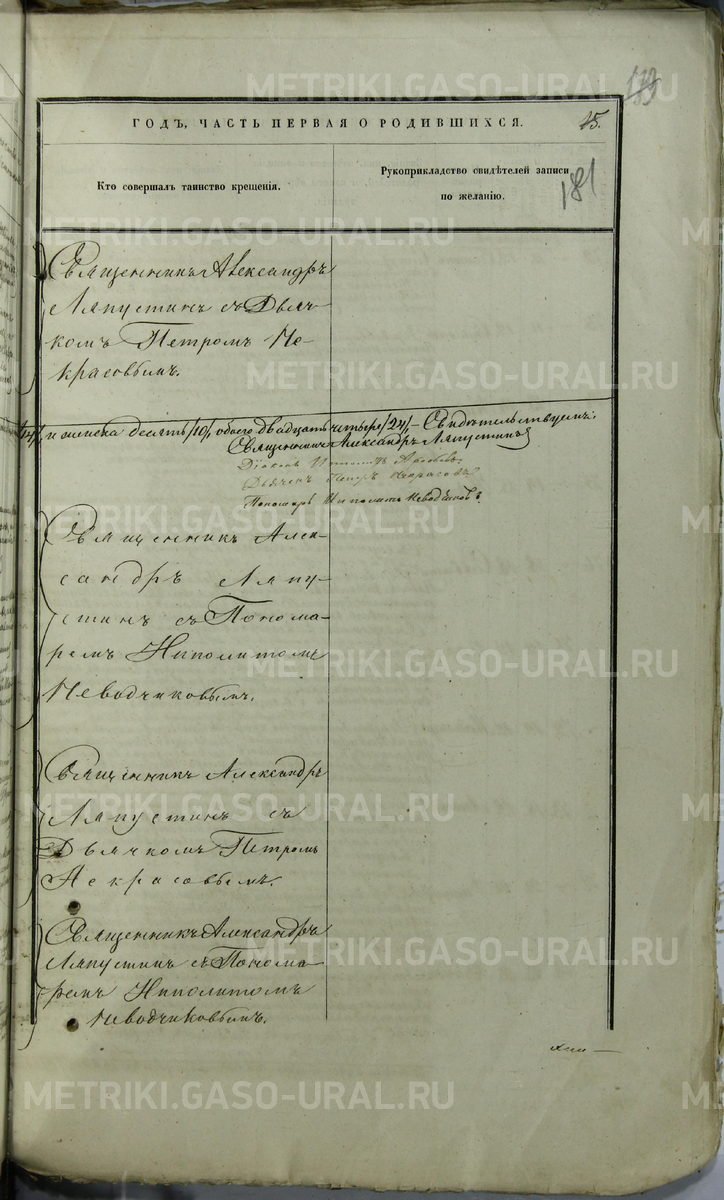 METRIKI.GASO-URAL.RU
139
ГОДЪ, ЧАСТЬ ПЕРВАЯ О РОДИВШИХСЯ.
15.
Кто совершалъ таинство крещенія.
Рукоприкладство свидѣтелей записи
по желанію.
181
Священникъ Александръ
Ляпустинъ съ Дья-
комъ Петромъ Не-
красовымъ.
/14/ и женска десять /10/, обоего двадцать четыре /24/, – Свидѣтельствуемъ:
Священникъ Александръ Ляпустинъ
Діаконъ
Дьячекъ Петръ Некрасовъ
Пономарь Ипполитъ Неводчиковъ.
Священникъ Алек-
сандръ Ляпу-
стинъ съ Понома-
ремъ Иполитомъ
Неводчиковымъ.
Священникъ Александръ
Ляпустинъ съ
Дьячкомъ Петромъ
Некрасовымъ.
Священникъ Александръ
Ляпустинъ съ Понома-
ремъ Иполитомъ
Неводчиковымъ.